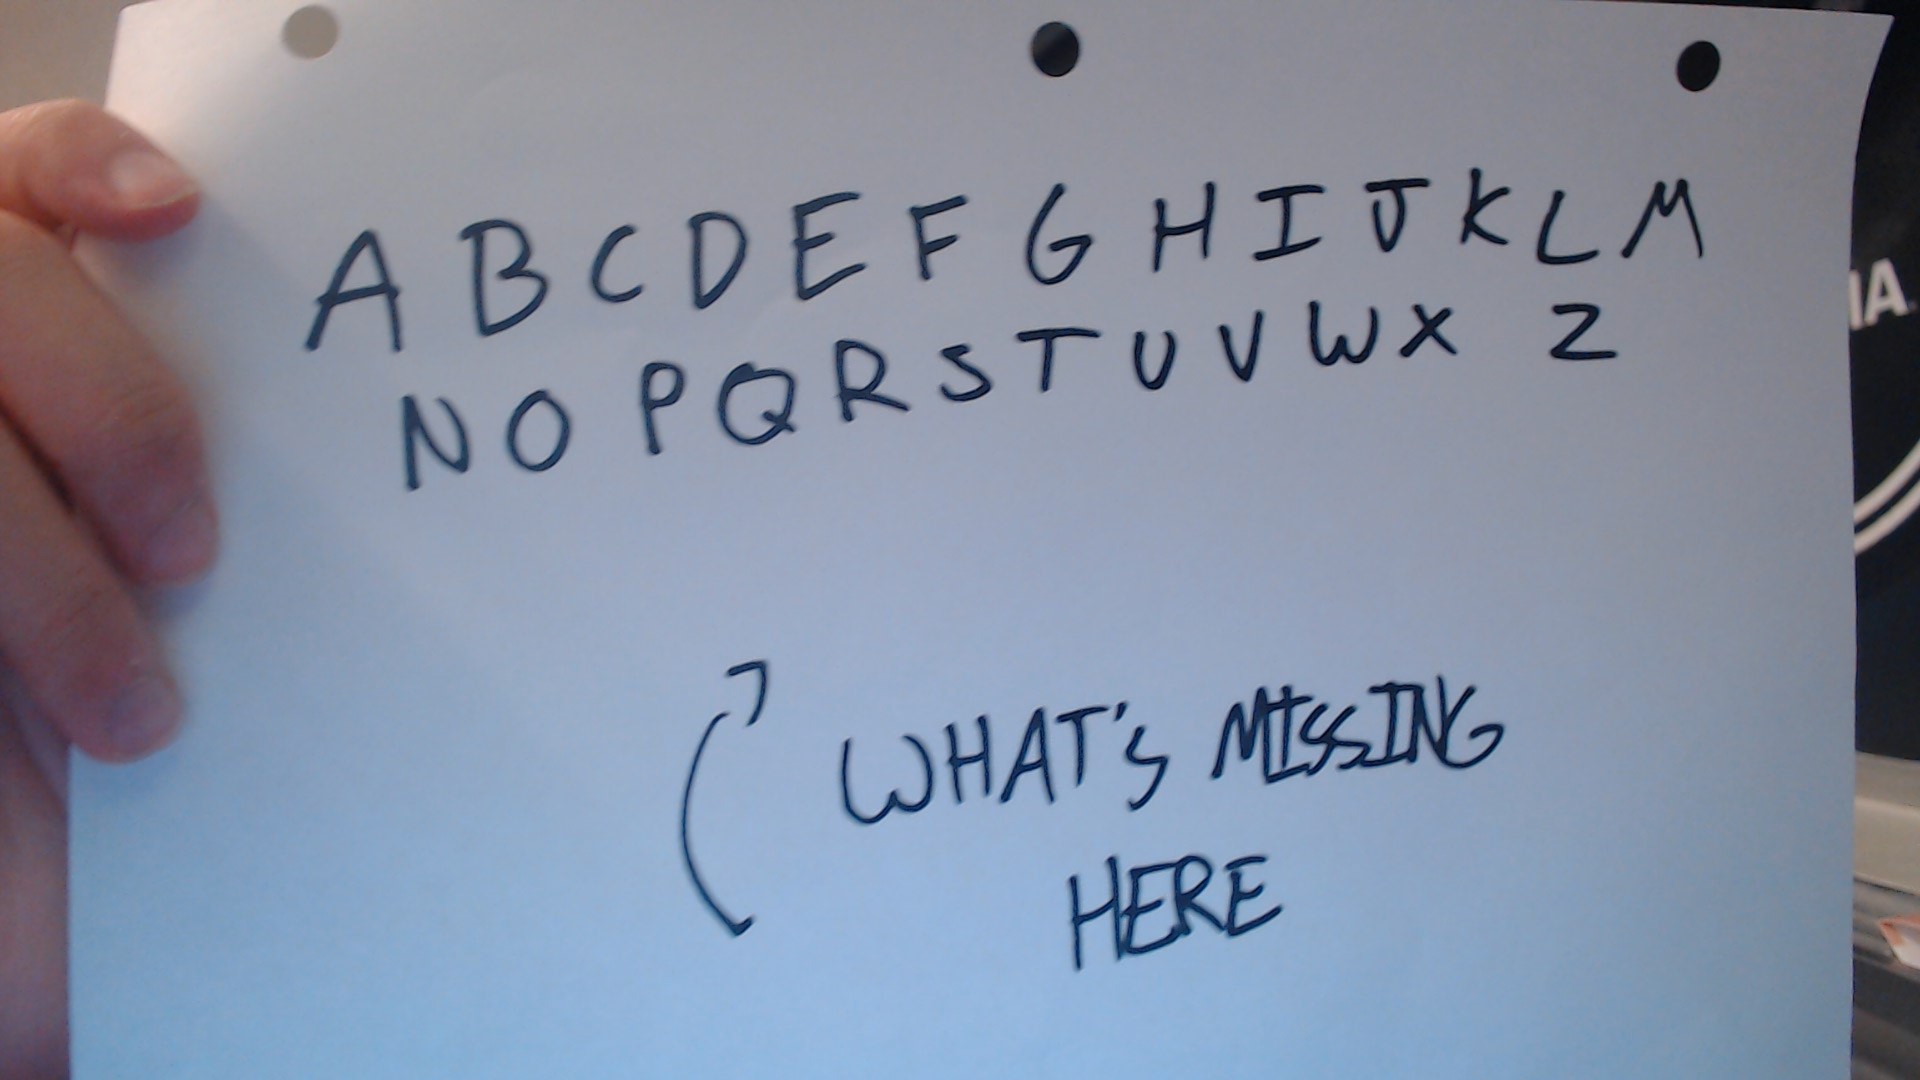 A B C D E F G H I J K L M
N O P Q R S T U V W X Z
WHAT's MISSING
HERE
IA